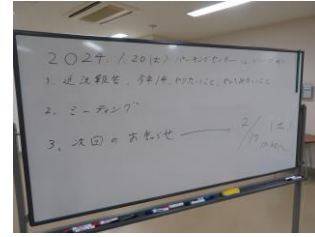 2024. 1.20(土)
1. 近況報告、今年1年、やりたいこと、やってみたいこと
2. ミーティング
3. 次回のお知らせ → 2/ (土)